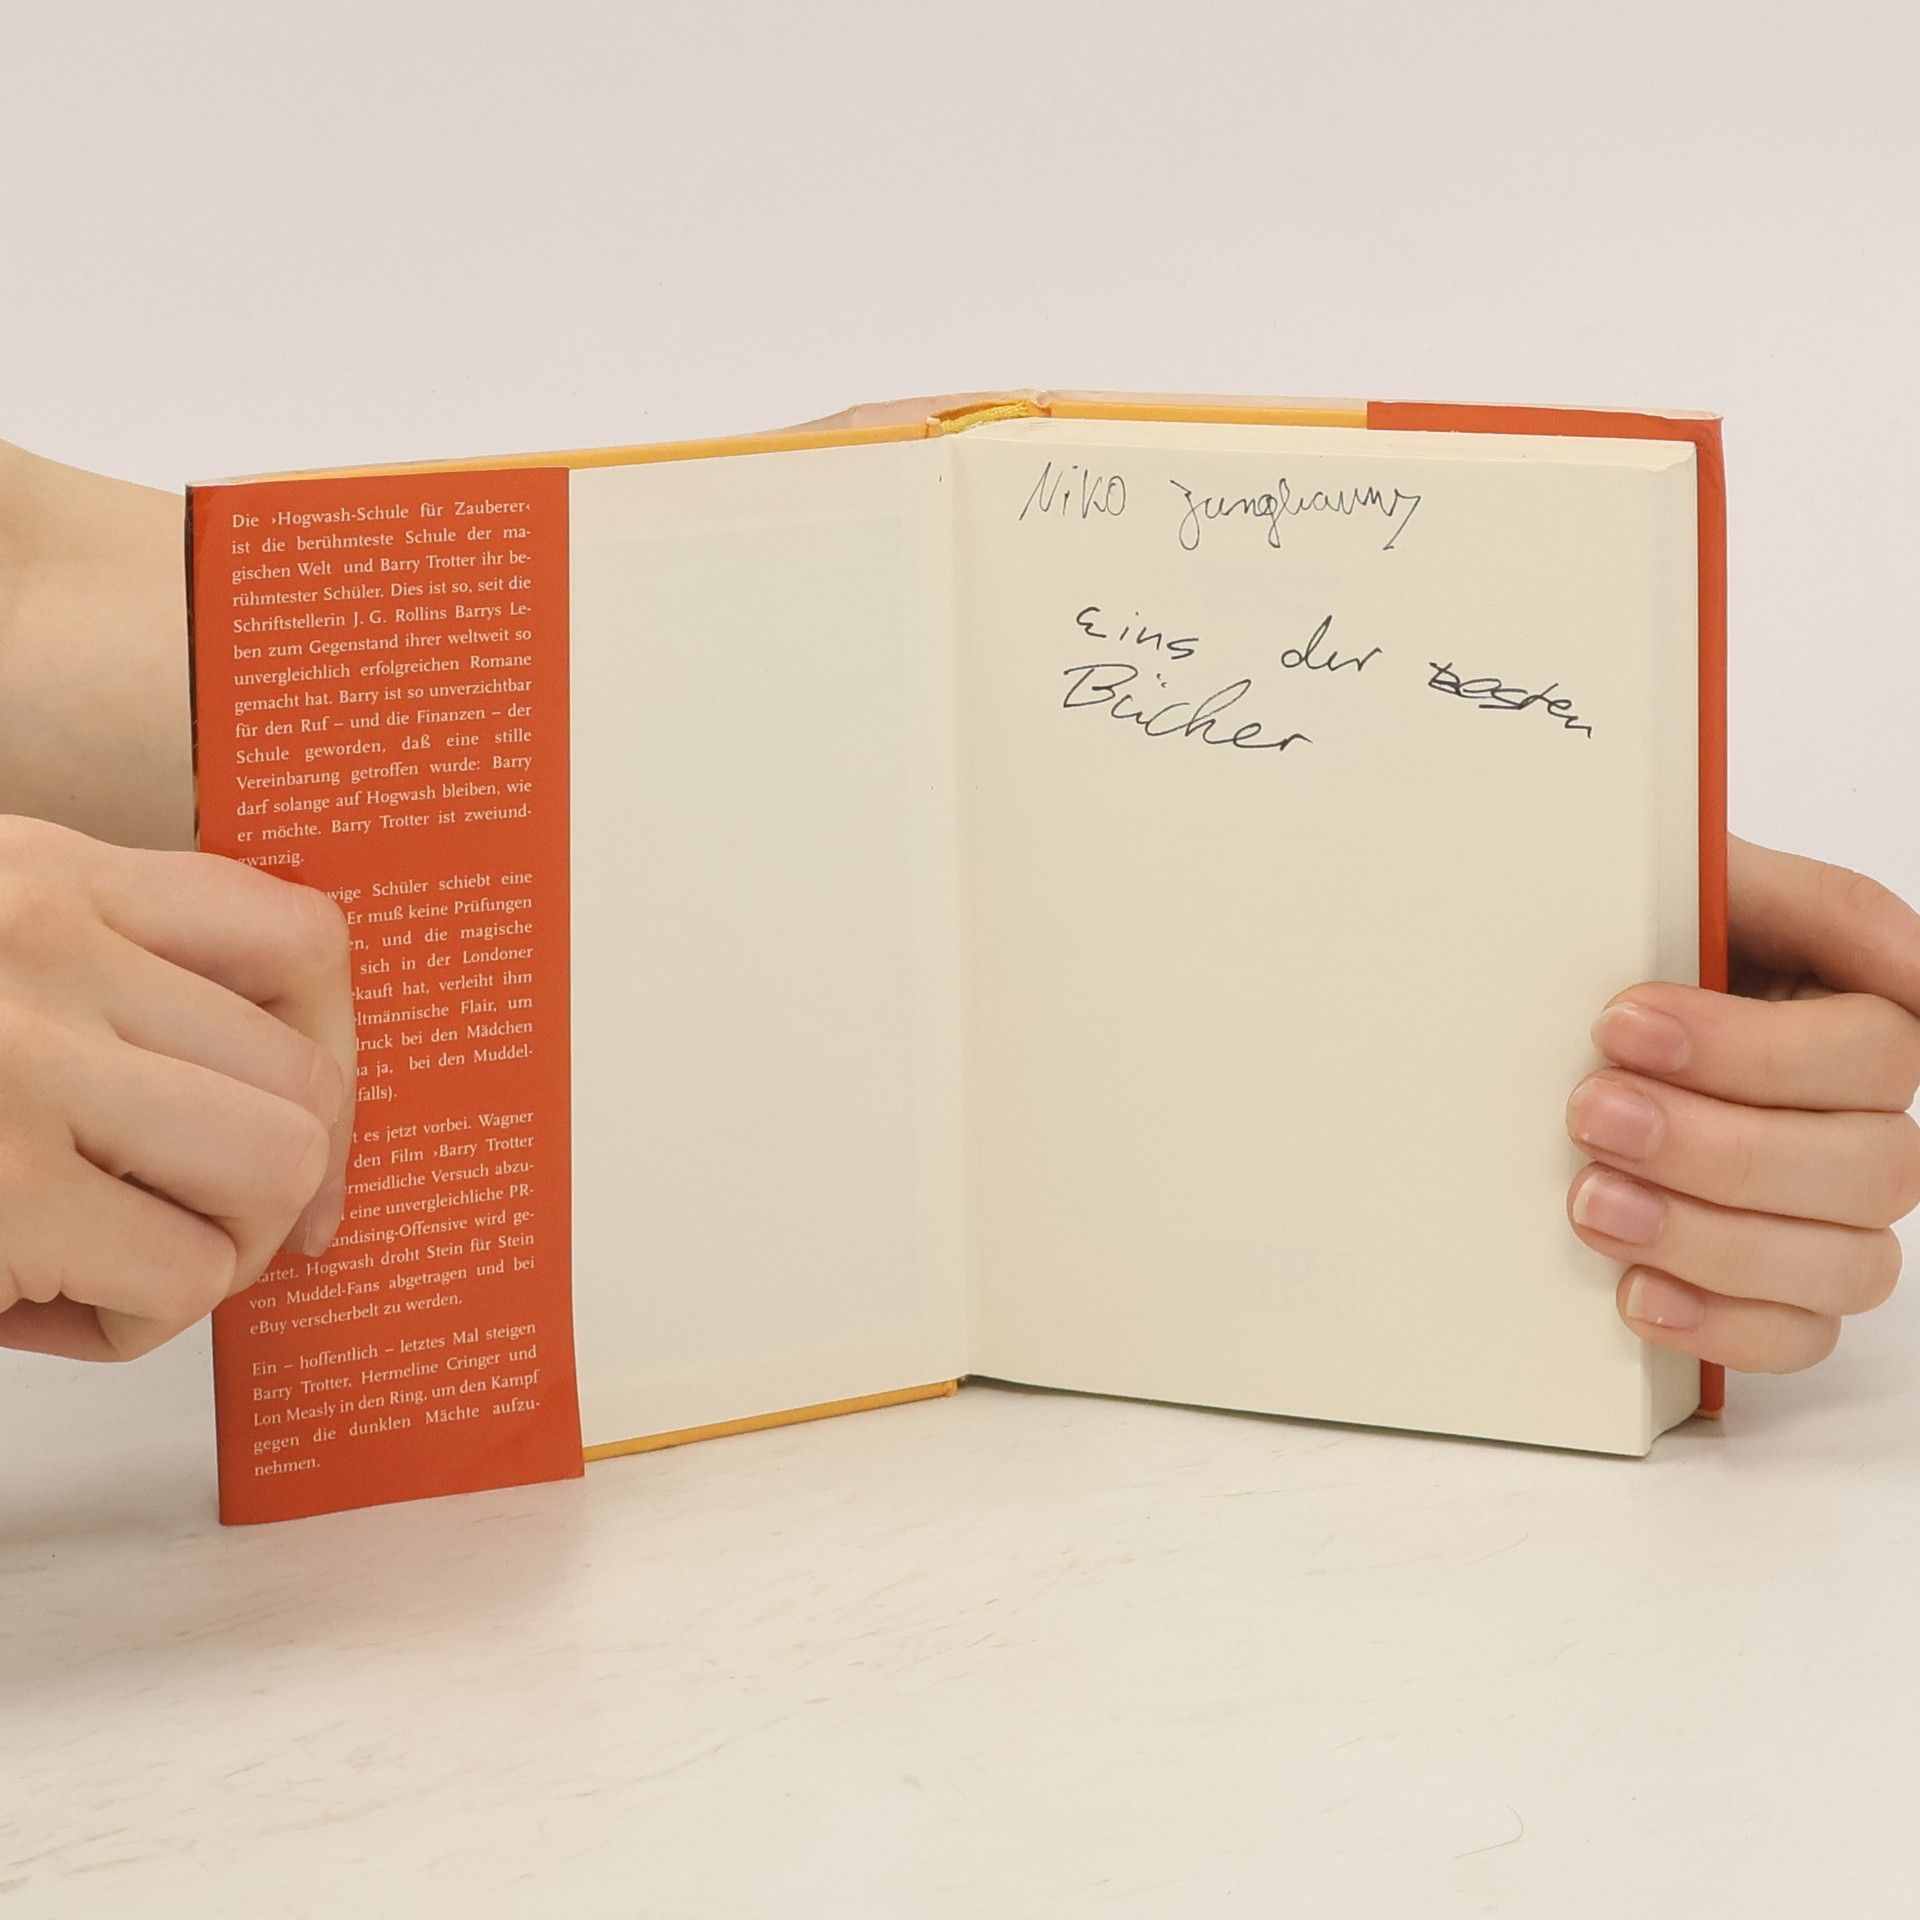 Die ›Hogwash-Schule für Zauberer‹
ist die berühmteste Schule der ma-
gischen Welt und Barry Trotter ihr be-
rühmtester Schüler. Dies ist so, seit die
Schriftstellerin J. G. Rollins Barrys Le-
ben zum Gegenstand ihrer weltweit so
unvergleichlich erfolgreichen Romane
gemacht hat. Barry ist so unverzichtbar
für den Ruf – und die Finanzen – der
Schule geworden, daß eine stille
Vereinbarung getroffen wurde: Barry
darf solange auf Hogwash bleiben, wie
er möchte. Barry Trotter ist zweiund-
zwanzig.
Schüler schiebt eine
Er muß keine Prüfungen
und die magische
sich in der Londoner
hat, verleiht ihm
Flair, um
bei den Mädchen
ja, bei den Muddel-
falls).
es jetzt vorbei. Wagner
den Film ›Barry Trotter
Versuch abzu-
eine unvergleichliche PR-
wird ge-
Hogwash droht Stein für Stein
von Muddel-Fans abgetragen und bei
eBuy verscherbelt zu werden.
Ein – hoffentlich – letztes Mal steigen
Barry Trotter, Hermeline Cringer und
Lon Measly in den Ring, um den Kampf
gegen die dunklen Mächte aufzu-
nehmen.
Niko Junghanns
Eins der besten
Bücher